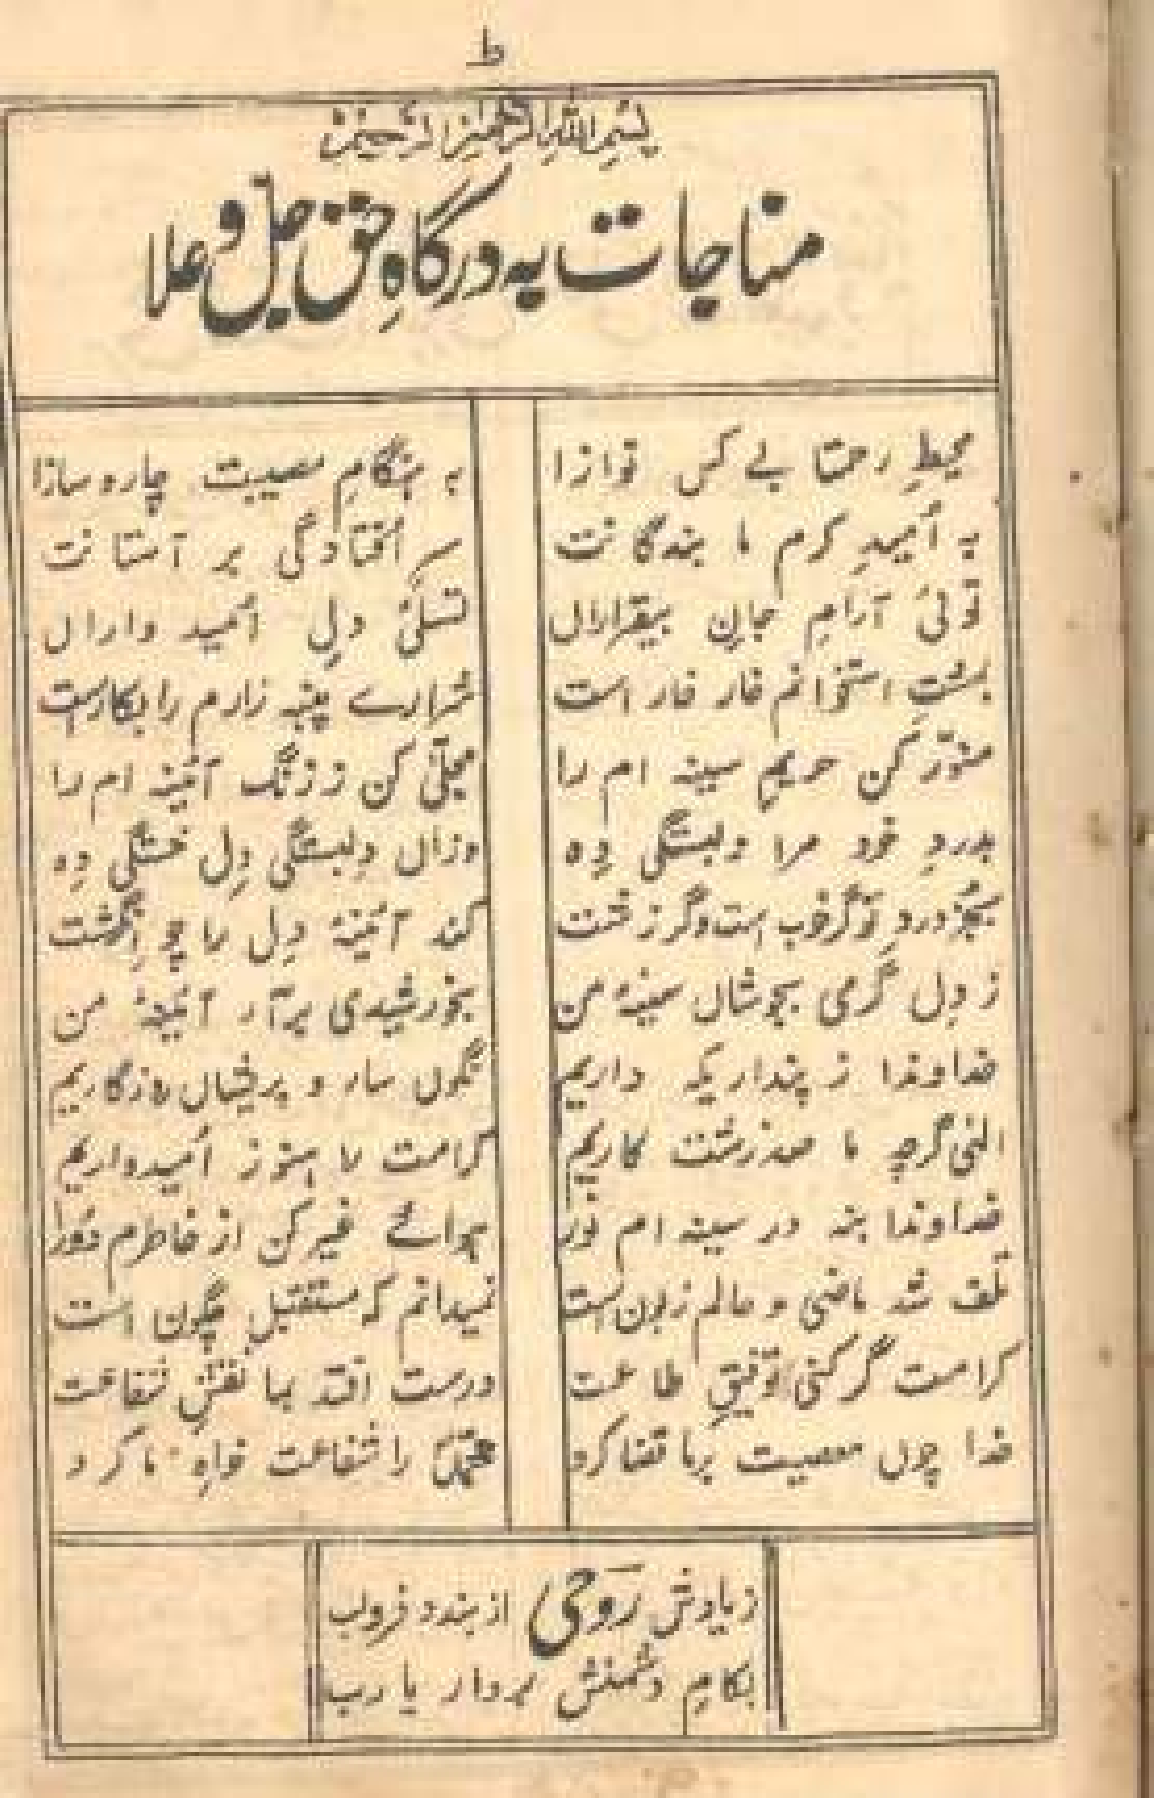 ط
بسم الله الرحمن الرحیم
مناجات بہ درگاہِ حق جلّ و علا
محیطِ رحمتا بے کس نوازا بہ ہنگامِ مصیبت چارہ سازا
بہ اُمیدِ کرم ما بندگانت سرِ اُفتادگی بر آستانت
توئی آرامِ جانِ بیقراراں تسلّیِٔ دلِ اُمید واراں
بمشتِ استخوانم خار خار است شرارے پنبہ زارم را بکار است
منوّر کن حریمِ سینہ ام را مجلّیٰ کن ز زنگ آئینہ ام را
بدردِ خود مرا وابستگی دِہ وزاں دلبستگی دِل خستگی دِہ
بجُز دردِ تو گر خوب است و گر زشت کند آئینۂ دِل را چو انگشت
ز دِل گرمی بجوشاں سینۂ من بخورشیدی برآر آئینۂ من
خداوندا ز پنداریکہ داریم نگوں سار و پریشاں روزگاریم
الٰہی گرچہ ما صد زشت کاریم کرامت را ہنوز اُمیدواریم
خداوندا بنہ در سینہ ام نور ہوائے غیر کن از خاطرم دُور
تلف شد ماضی و حالم زبون است نمیدانم کہ مستقبل چگون است
کرامت گر کنی توفیقِ طاعت درست افتد بما نقشِ شفاعت
خدا چوں معصیت برما قضا کرد محمّدؐ را شفاعت خواہِ ما کرد
ز یادش رَوحی از بندد فرولب
بکامِ دشمنش بردار یا رب